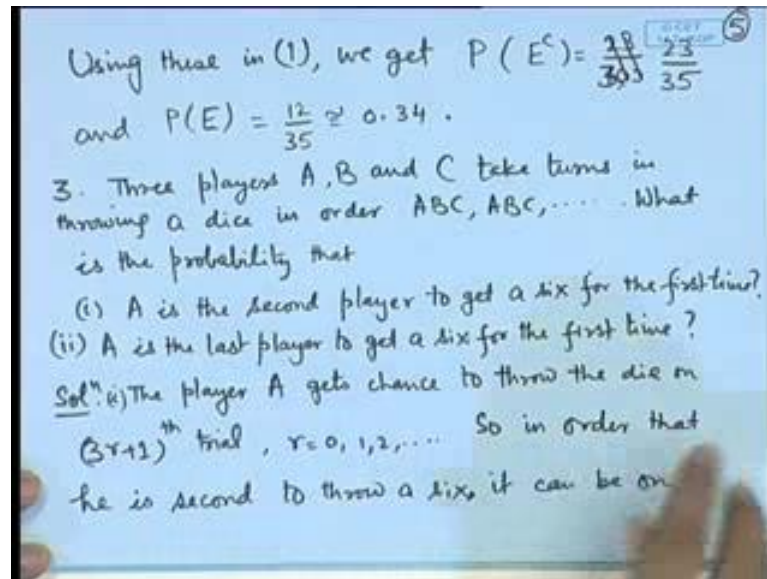 5
Using these in (1), we get P(Eᶜ) = 23/35
and P(E) = 12/35 ≈ 0.34.
3. Three players A, B and C take turns in
throwing a dice in order ABC, ABC, ..... What
is the probability that
(i) A is the second player to get a six for the first time?
(ii) A is the last player to get a six for the first time?
Solⁿ. (i) The player A gets chance to throw the die on
(3r+1)ᵗʰ trial, r=0, 1, 2, .... So in order that
he is second to throw a six, it can be on